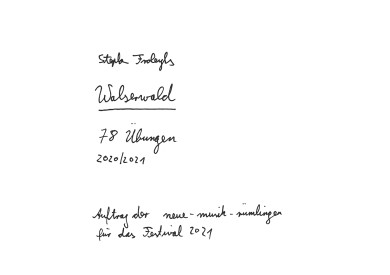 Stephan Froleyks
Walserwald
78 Übungen
2020/2021
Auftrag der neue-musik-rümlingen
für das Festival 2021